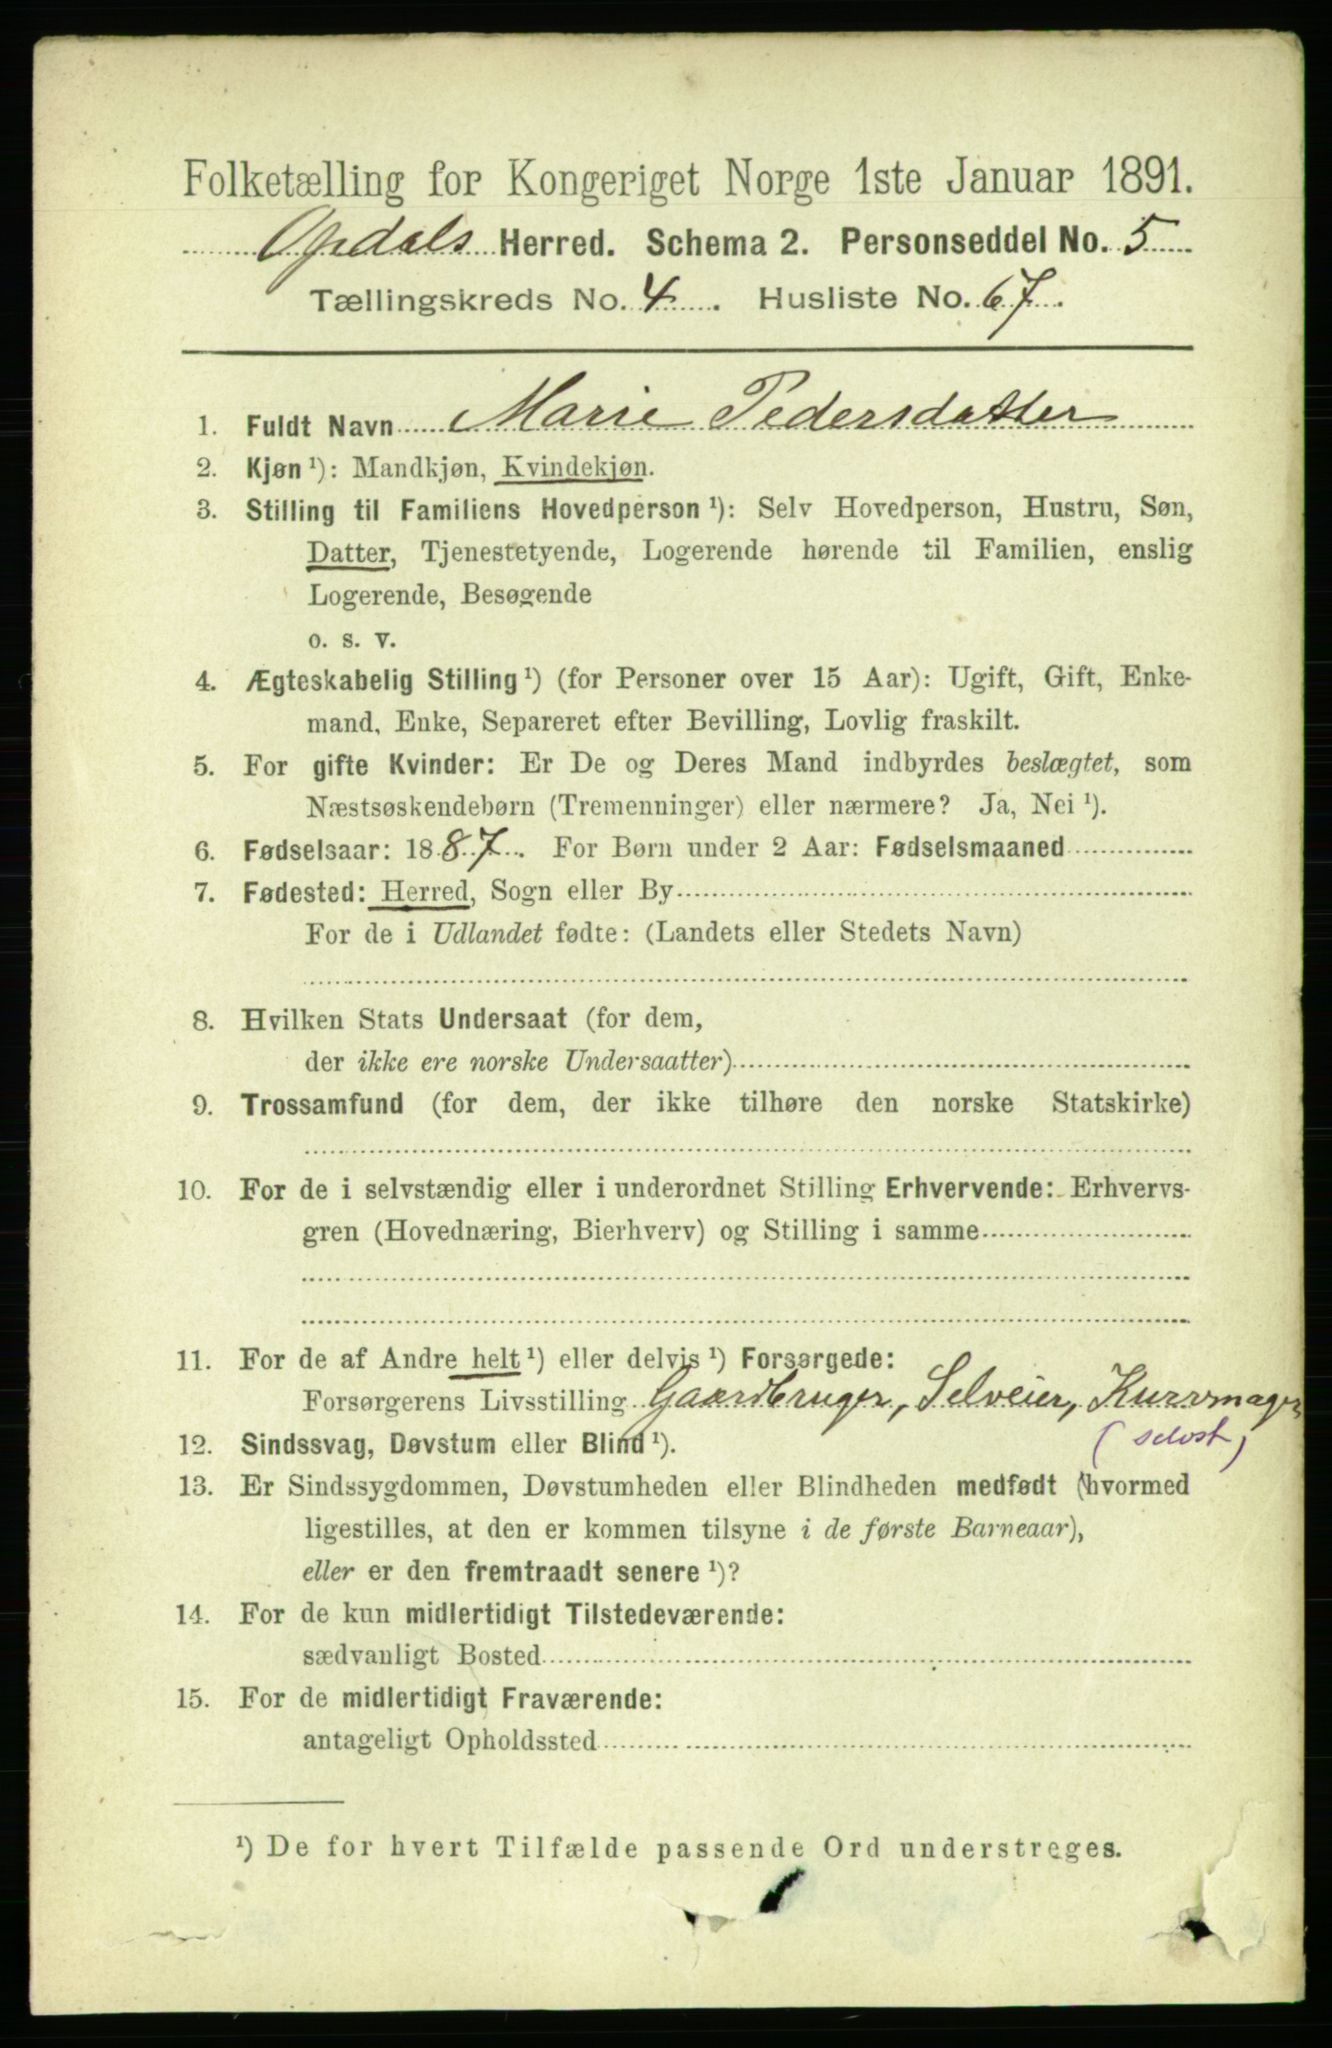 Folketælling for Kongeriget Norge 1ste Januar 1891.
Opdals Herred. Schema 2. Personseddel No. 5
Tællingskreds No. 4. Husliste No. 67.
1. Fuldt Navn Marie Pedersdatter
2. Kjøn ¹): Mandkjøn, Kvindekjøn.
3. Stilling til Familiens Hovedperson ¹): Selv Hovedperson, Hustru, Søn,
Datter, Tjenestetyende, Logerende hørende til Familien, enslig
Logerende, Besøgende
o. s. v.
4. Ægteskabelig Stilling ¹) (for Personer over 15 Aar): Ugift, Gift, Enke-
mand, Enke, Separeret efter Bevilling, Lovlig fraskilt.
5. For gifte Kvinder: Er De og Deres Mand indbyrdes beslægtet, som
Næstsøskendebørn (Tremenninger) eller nærmere? Ja, Nei ¹).
6. Fødselsaar: 1887. For Børn under 2 Aar: Fødselsmaaned
7. Fødested: Herred, Sogn eller By
For de i Udlandet fødte: (Landets eller Stedets Navn)
8. Hvilken Stats Undersaat (for dem,
der ikke ere norske Undersaatter)
9. Trossamfund (for dem, der ikke tilhøre den norske Statskirke)
10. For de i selvstændig eller i underordnet Stilling Erhvervende: Erhvervs-
gren (Hovednæring, Bierhverv) og Stilling i samme
11. For de af Andre helt ¹) eller delvis ¹) Forsørgede:
Forsørgerens Livsstilling Gaardbruger, Selveier, Kurvmager
(selvst)
12. Sindssvag, Døvstum eller Blind ¹).
13. Er Sindssygdommen, Døvstumheden eller Blindheden medfødt (hvormed
ligestilles, at den er kommen tilsyne i de første Barneaar),
eller er den fremtraadt senere ¹)?
14. For de kun midlertidigt Tilstedeværende:
sædvanligt Bosted
15. For de midlertidigt Fraværende:
antageligt Opholdssted
¹) De for hvert Tilfælde passende Ord understreges.